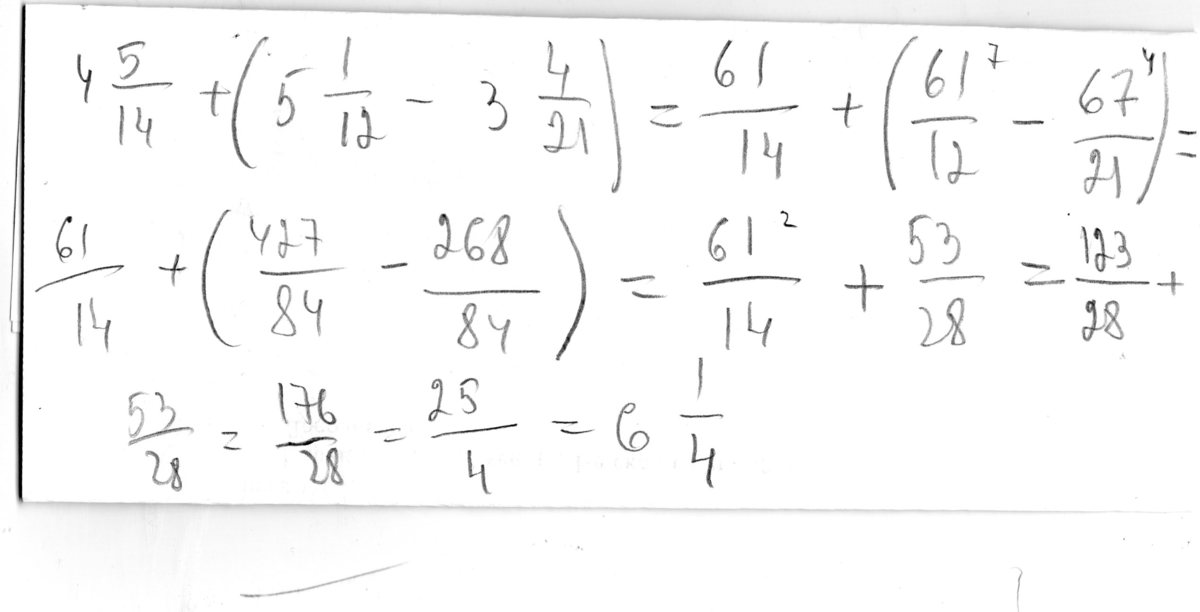 4 5/14 + (5 1/12 - 3 4/21) = 61/14 + (61^7/12 - 67^4/21) =
61/14 + (427/84 - 268/84) = 61^2/14 + 53/28 = 123/28 +
53/28 = 176/28 = 25/4 = 6 1/4